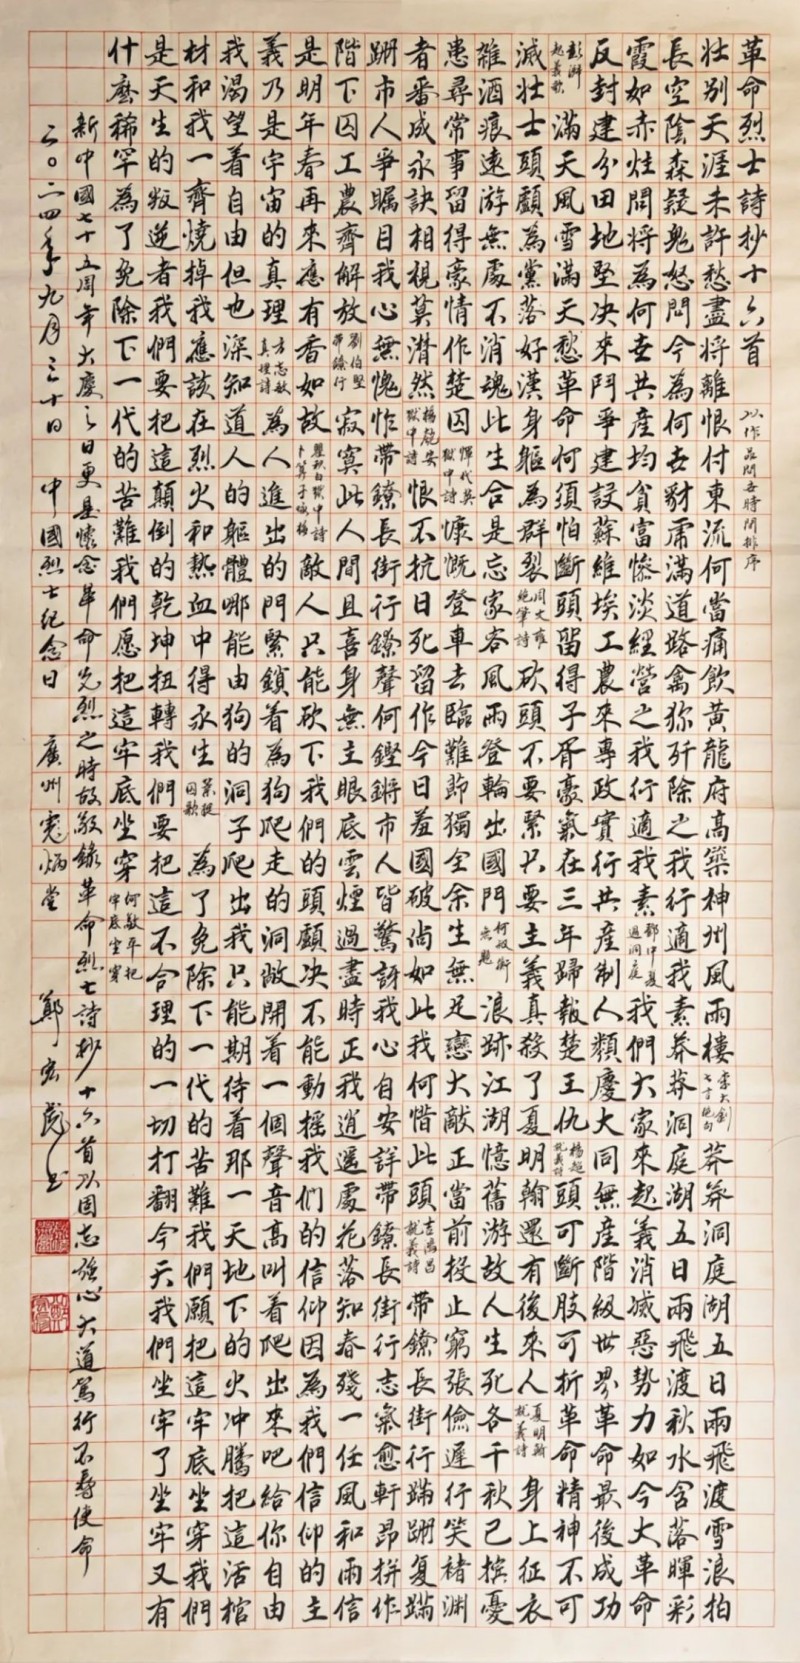 革命烈士詩抄十六首 以作品問世時間排序
壯別天涯未許愁盡將離恨付東流何當痛飲黃龍府高築神州風雨樓 李大釗七言絕句 莽莽洞庭湖五日兩飛渡雪浪拍
長空陰森疑鬼怒問今為何世豺虎滿道路禽獼歼除之我行適我素莽莽洞庭湖五日兩飛渡秋水含落暉彩
霞如赤炷問將為何世共產均貧富慘淡經營之我行適我素 鄧中夏過洞庭 我們大家來起義消滅惡勢力如今大革命
反封建分田地堅決來鬥爭建設蘇維埃工農來專政實行共產制人類慶大同無產階級世界革命最後成功
彭湃起義歌 滿天風雪滿天愁革命何須怕斷頭留得子胥豪氣在三年歸報楚王仇 楊超就義詩 頭可斷肢可折革命精神不可
滅壯士頭顱為黨落好漢身軀為群裂 周文雍絕筆詩 砍頭不要緊只要主義真殺了夏明翰還有後來人 夏明翰就義詩 身上征衣
雜酒痕遠游無處不消魂此生合是忘家客風雨登輪出國門 何叔衡無題 浪跡江湖憶舊游故人生死各千秋已擯憂
患尋常事留得豪情作楚囚 惲代英獄中詩 慷慨登車去臨難節獨全余生無足戀大敵正當前投止窮張儉遲行笑褚淵
者番成永訣相視莫潸然 楊匏安獄中詩 恨不抗日死留作今日羞國破尚如此我何惜此頭 吉鴻昌就義詩 帶鐐長街行蹣跚复蹣
跚市人爭矚目我心無愧怍帶鐐長街行鐐聲何鏗鏘市人皆驚訝我心自安詳帶鐐長街行志氣愈軒昂拚作
階下囚工農齊解放 劉伯堅帶鐐行 寂寞此人間且喜身無主眼底雲煙過盡時正我逍遙處花落知春殘一任風和雨信
是明年春再來應有香如故 瞿秋白獄中詩卜算子咏梅 敵人只能砍下我們的頭顱決不能動搖我们的信仰因為我們信仰的主
義乃是宇宙的真理 方志敏真理詩 為人進出的門緊鎖着為狗爬走的洞敞開着一個聲音高叫着爬出來吧給你自由
我渴望着自由但也深知道人的軀體哪能由狗的洞子爬出我只能期待着那一天地下的火冲騰把這活棺
材和我一齊燒掉我應該在烈火和熱血中得永生 葉挺囚歌 為了免除下一代的苦難我們願把這牢底坐穿我們
是天生的叛逆者我們要把這顛倒的乾坤扭轉我們要把這不合理的一切打翻今天我們坐牢了坐牢又有
什麼稀罕為了免除下一代的苦難我們愿把這牢底坐穿 何敬平把牢底坐穿
新中國七十五周年大慶之日更是懷念革命先烈之時故敬錄革命烈士詩抄十六首以固志強心大道篤行不辱使命
二〇二四年九月三十日 中國烈士紀念日 廣州 炳堂 鄭宏 書